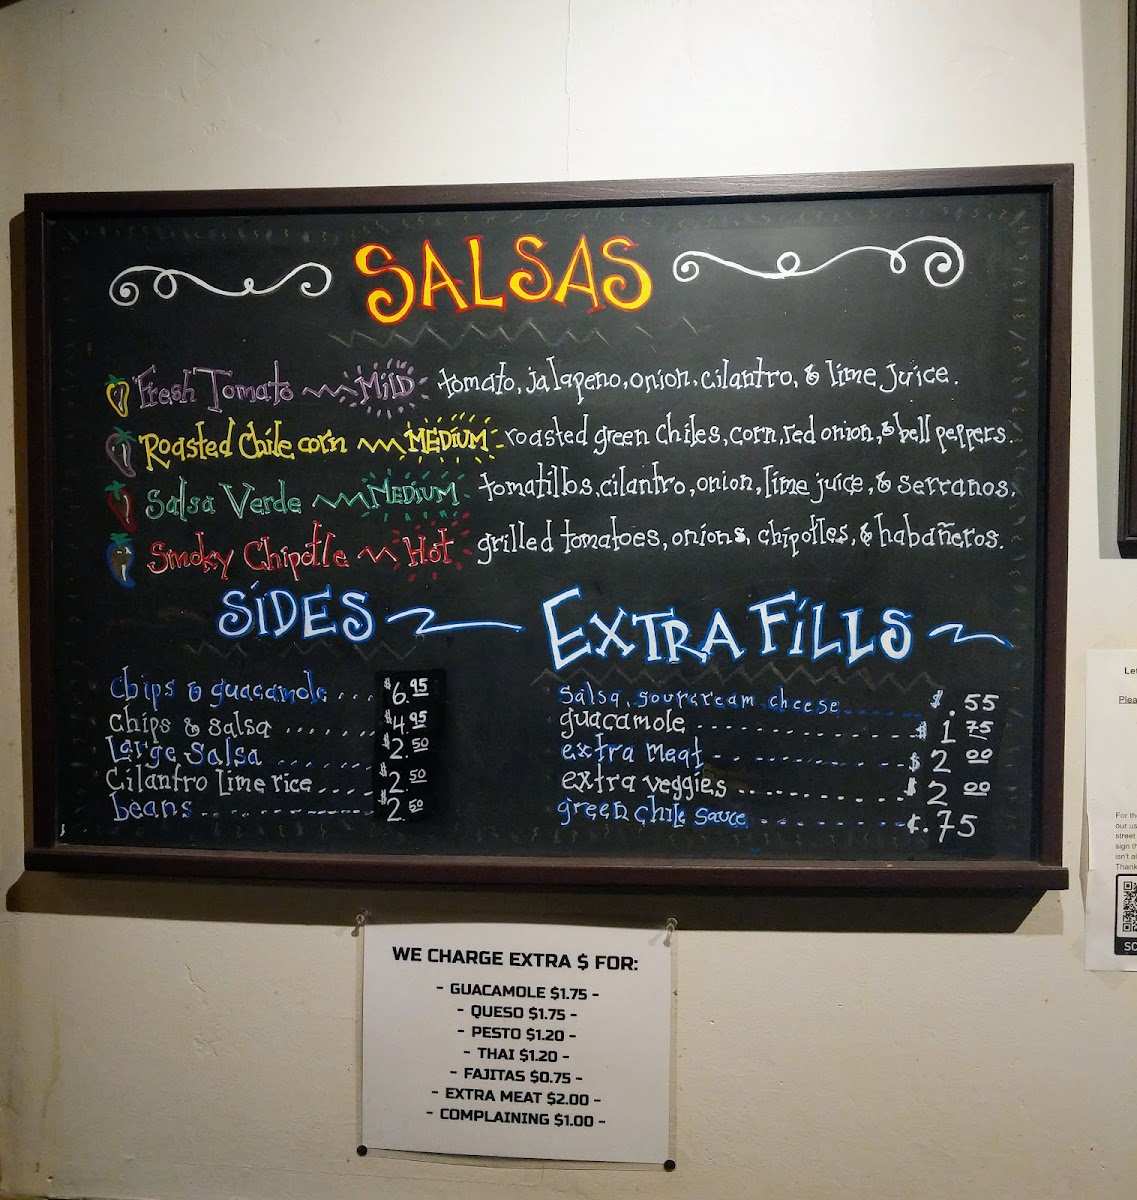 SALSAS
Fresh Tomato MILD tomato, jalapeno, onion, cilantro, & lime juice.
Roasted Chile corn MEDIUM roasted green chiles, corn, red onion, & bell peppers.
Salsa Verde MEDIUM tomatillos, cilantro, onion, lime juice, & serranos.
Smoky Chipotle Hot grilled tomatoes, onions, chipotles, & habañeros.
SIDES
chips & guacamole ... $6.95
chips & salsa ...... $4.95
Large Salsa ....... $2.50
Cilantro Lime rice .... $2.50
beans ............. $2.50
EXTRA FILLS
salsa, sourcream, cheese ...... $.55
guacamole ............... $1.75
extra meat ............. $2.00
extra veggies ........... $2.00
green chile sauce ......... ¢.75
WE CHARGE EXTRA $ FOR:
- GUACAMOLE $1.75 -
- QUESO $1.75 -
- PESTO $1.20 -
- THAI $1.20 -
- FAJITAS $0.75 -
- EXTRA MEAT $2.00 -
- COMPLAINING $1.00 -
For
our us
street
sign
isn't